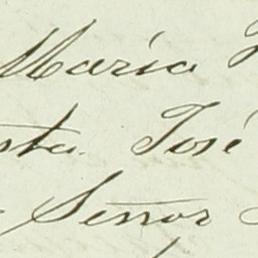 Maria
sta. José
Señor